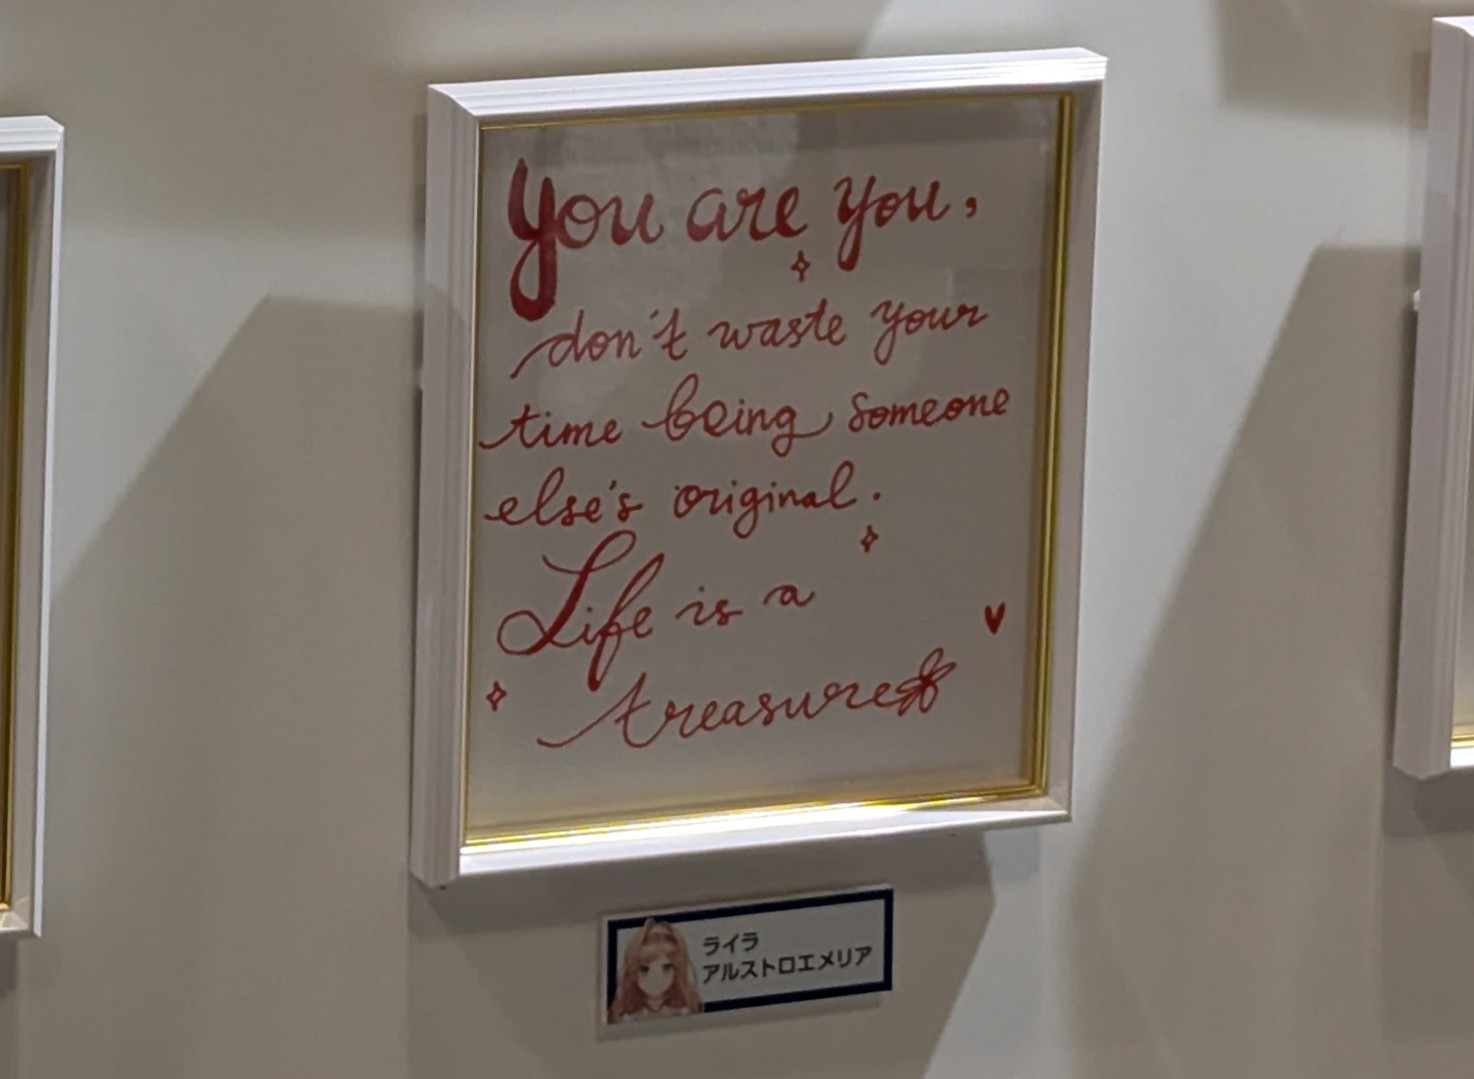 You are you,
don't waste your
time being someone
else's original.
Life is a
treasure
ライラ
アルストロエメリア